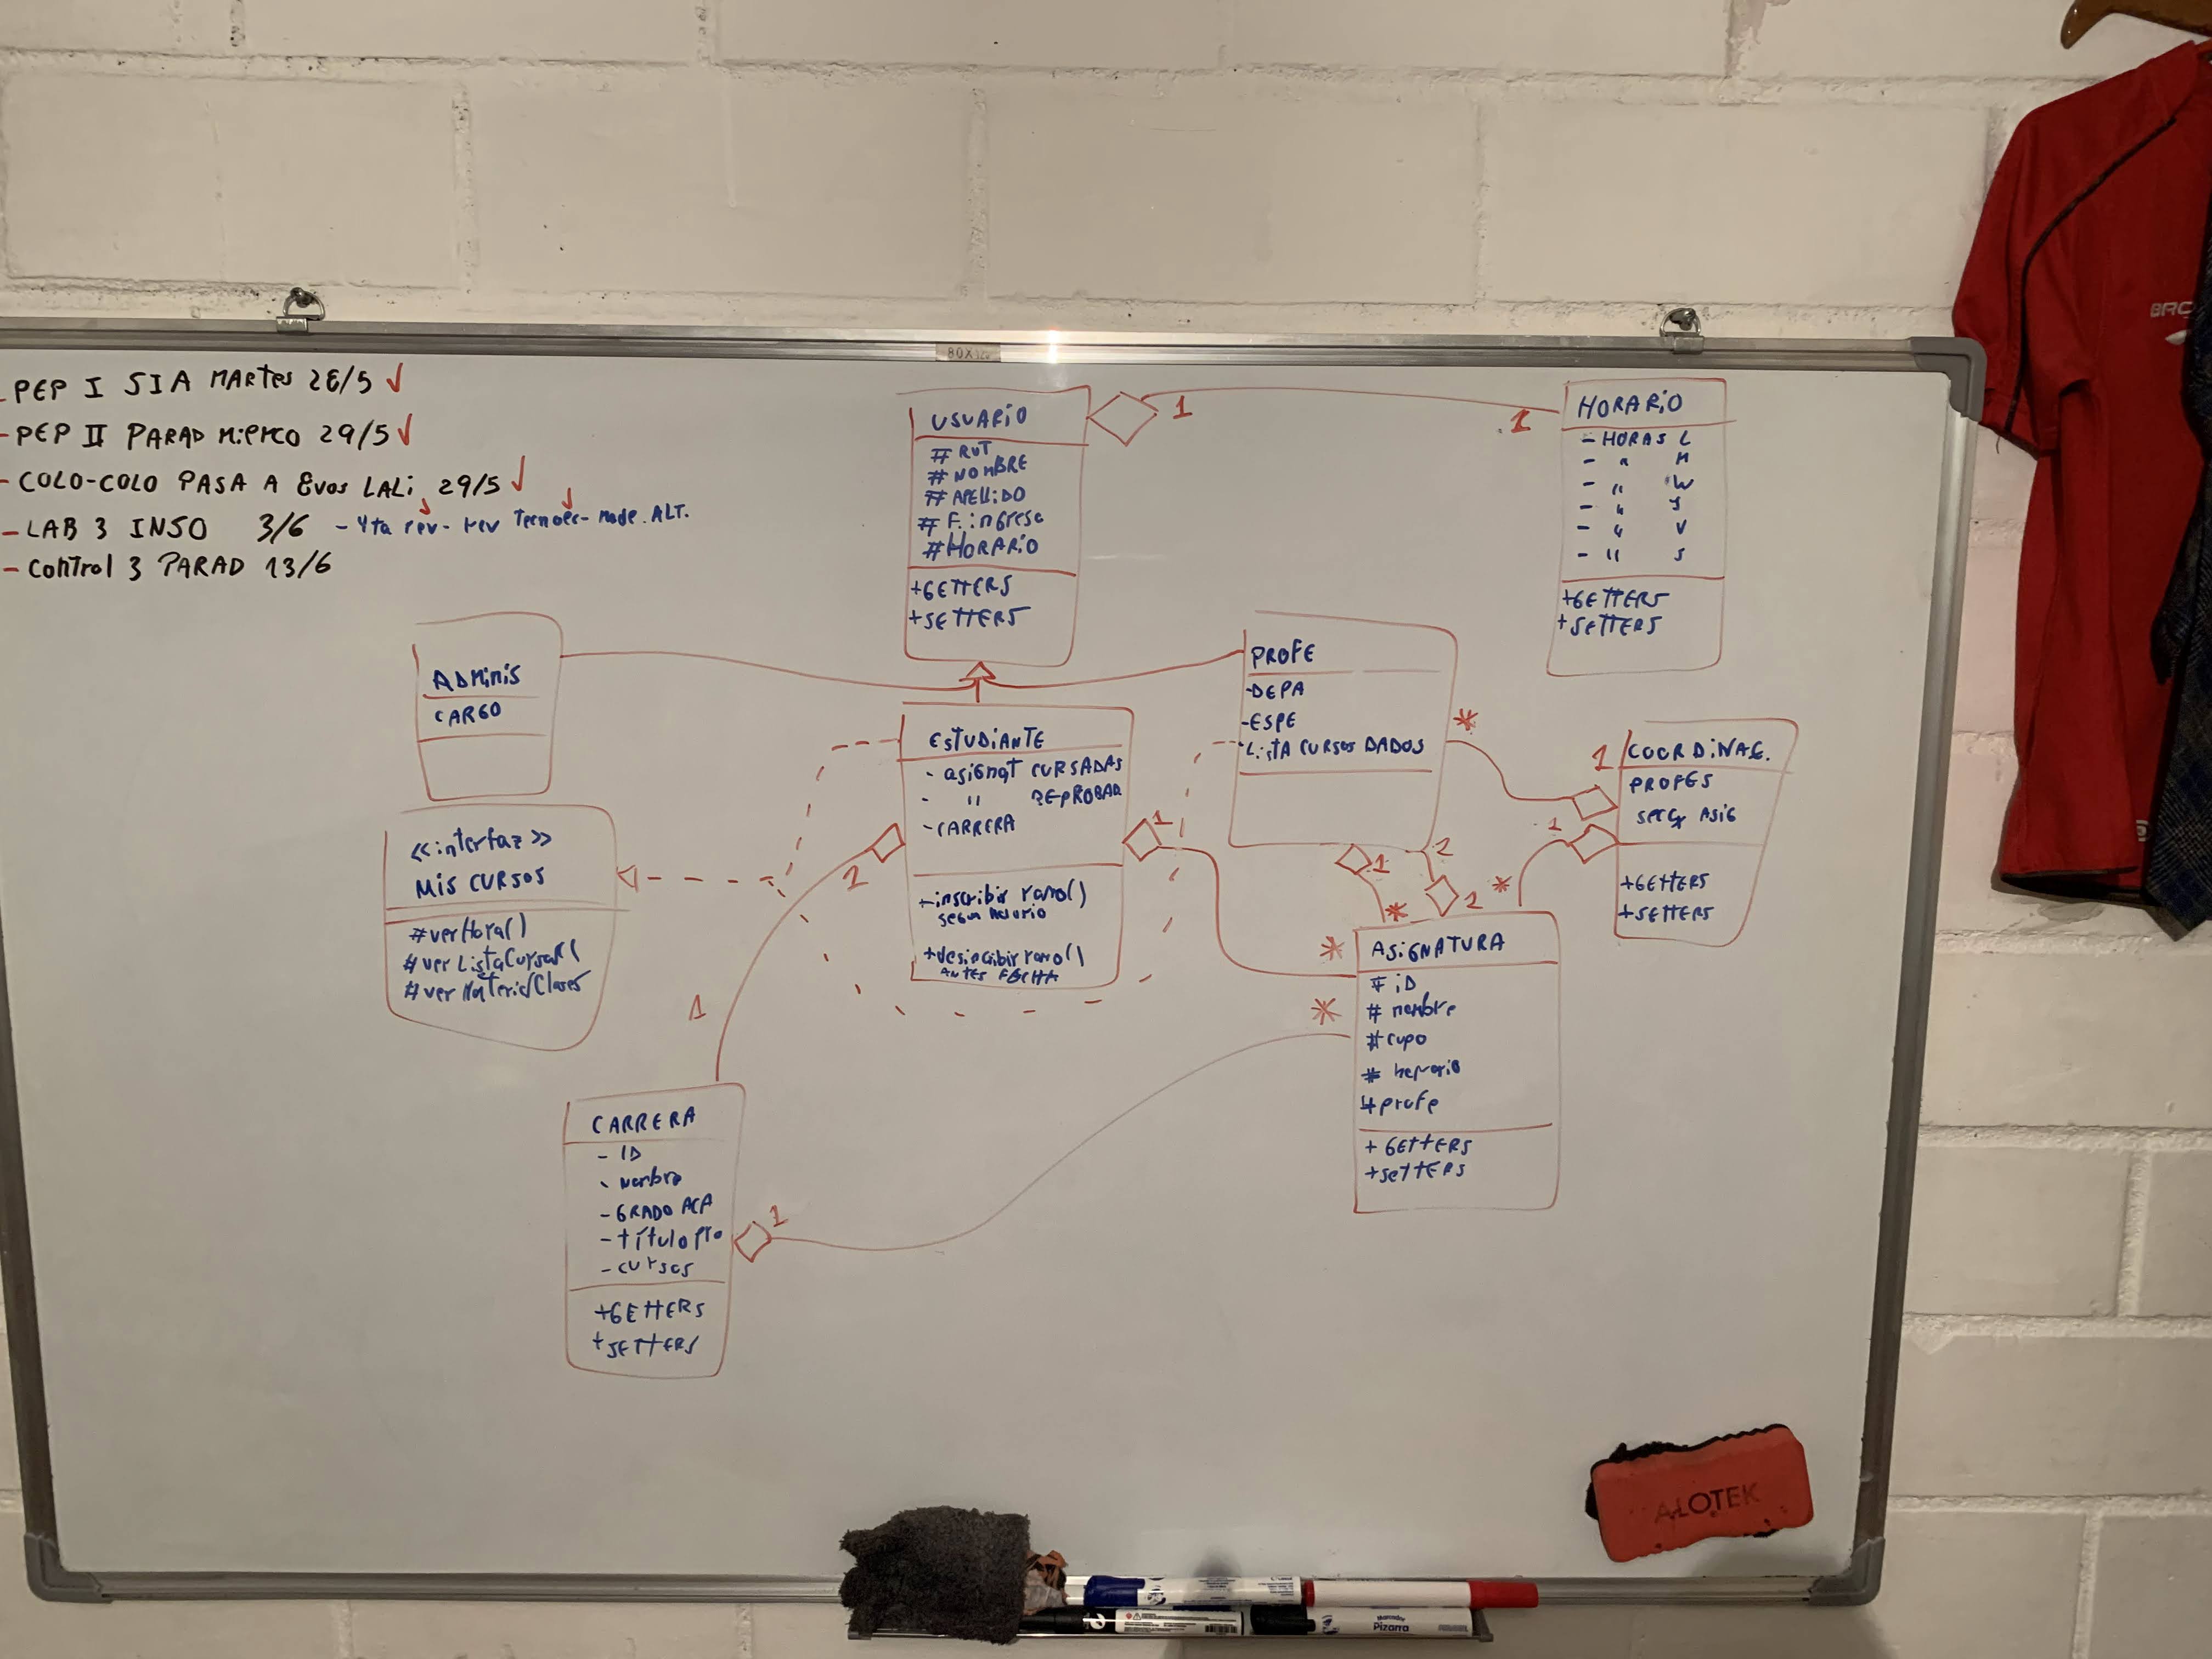 - PEP I SIA MARTES 26/5 ✓
- PEP II PARAD MIERCO 29/5 ✓
- COLO-COLO PASA A 8vos LALi 29/5 ✓
- LAB 3 INSO 3/6 - 4ta rev - rev - mode. ALT.
- Control 3 PARAD 13/6
80X
USUARIO
# RUT
# NOMBRE
# APELLIDO
# F. ingreso
# HORARIO
+GETTERS
+SETTERS
1
1
HORARIO
- HORAS L
- " M
- " W
- " J
- " V
- " S
+GETTERS
+SETTERS
ADMINIS
CARGO
ESTUDIANTE
- asignat CURSADAS
- " REPROBAD
- CARRERA
+inscribir ramo()
segun horario
+desinscribir ramo()
ANTES FECHA
PROFE
-DEPA
-ESPE
-LISTA CURSOS DADOS
*
1
COORDINAC.
PROFES
ASIG
+GETTERS
+SETTERS
<<interfaz>>
MIS CURSOS
#verHora()
#verListaCursos(
#verMaterialClases
2
1
1
*
1
*
2
2
1
*
ASIGNATURA
# iD
# nombre
# cupo
# horario
# profe
+ GETTERS
+SETTERS
*
1
CARRERA
- ID
- Nombre
- GRADO ACA
- título pro
- cursos
+GETTERS
+SETTERS
BRO
ALOTEK
Marcador
Pizarra